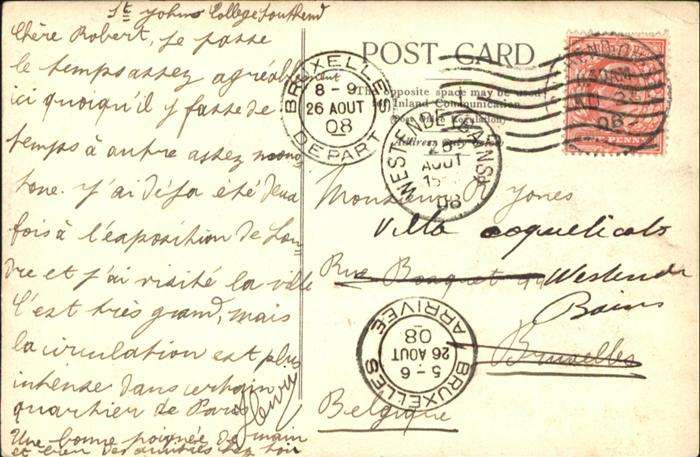 St Johns College Southend
Chère Robert, je passe
le temps assez agréablement
ici quoiqu'il y fasse de
temps à autre assez mono
tone. J'ai déja été deux
fois à l'exposition de Lon
dre et j'ai visité la ville
C'est très grand, mais
la circulation est plus
intense dans certain
quartier de Paris
Henri
Une bonne poignée de main
et bien des amitiés chez toi
POST CARD
The opposite space may be used
for Inland Communication
(Post Office Regulation)
Address Only
BRUXELLES
8 - 9
26 AOUT
08
DEPART
WESTENDE (BAINS)
AOUT
08
PENNY
Monsieur R. Jones
Villa Coquelicots
Rue Bosquet Westende
Bains
Bruxelles
Belgique
BRUXELLES
5 - 6
26 AOUT
08
ARRIVEE